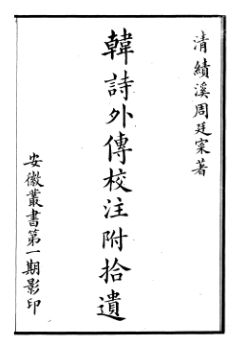 清績溪周廷寀著
韓詩外傳校注附拾遺
安徽叢書第一期影印